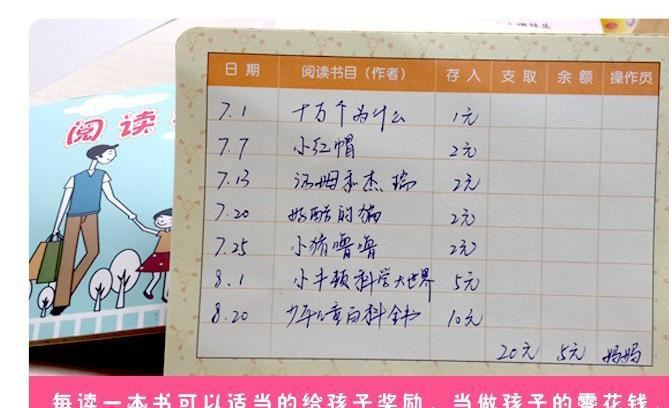 阅读
日期 阅读书目（作者） 存入 支取 余额 操作员
7.1 十万个为什么 1元
7.7 小红帽 2元
7.13 汤姆和杰瑞 2元
7.20 的猫 2元
7.25 小猪噜噜 2元
8.1 小牛顿科学大世界 5元
8.20 少年儿童百科全书 10元
20元 5元 妈妈
每读一本书可以适当的给孩子奖励，当做孩子的零花钱